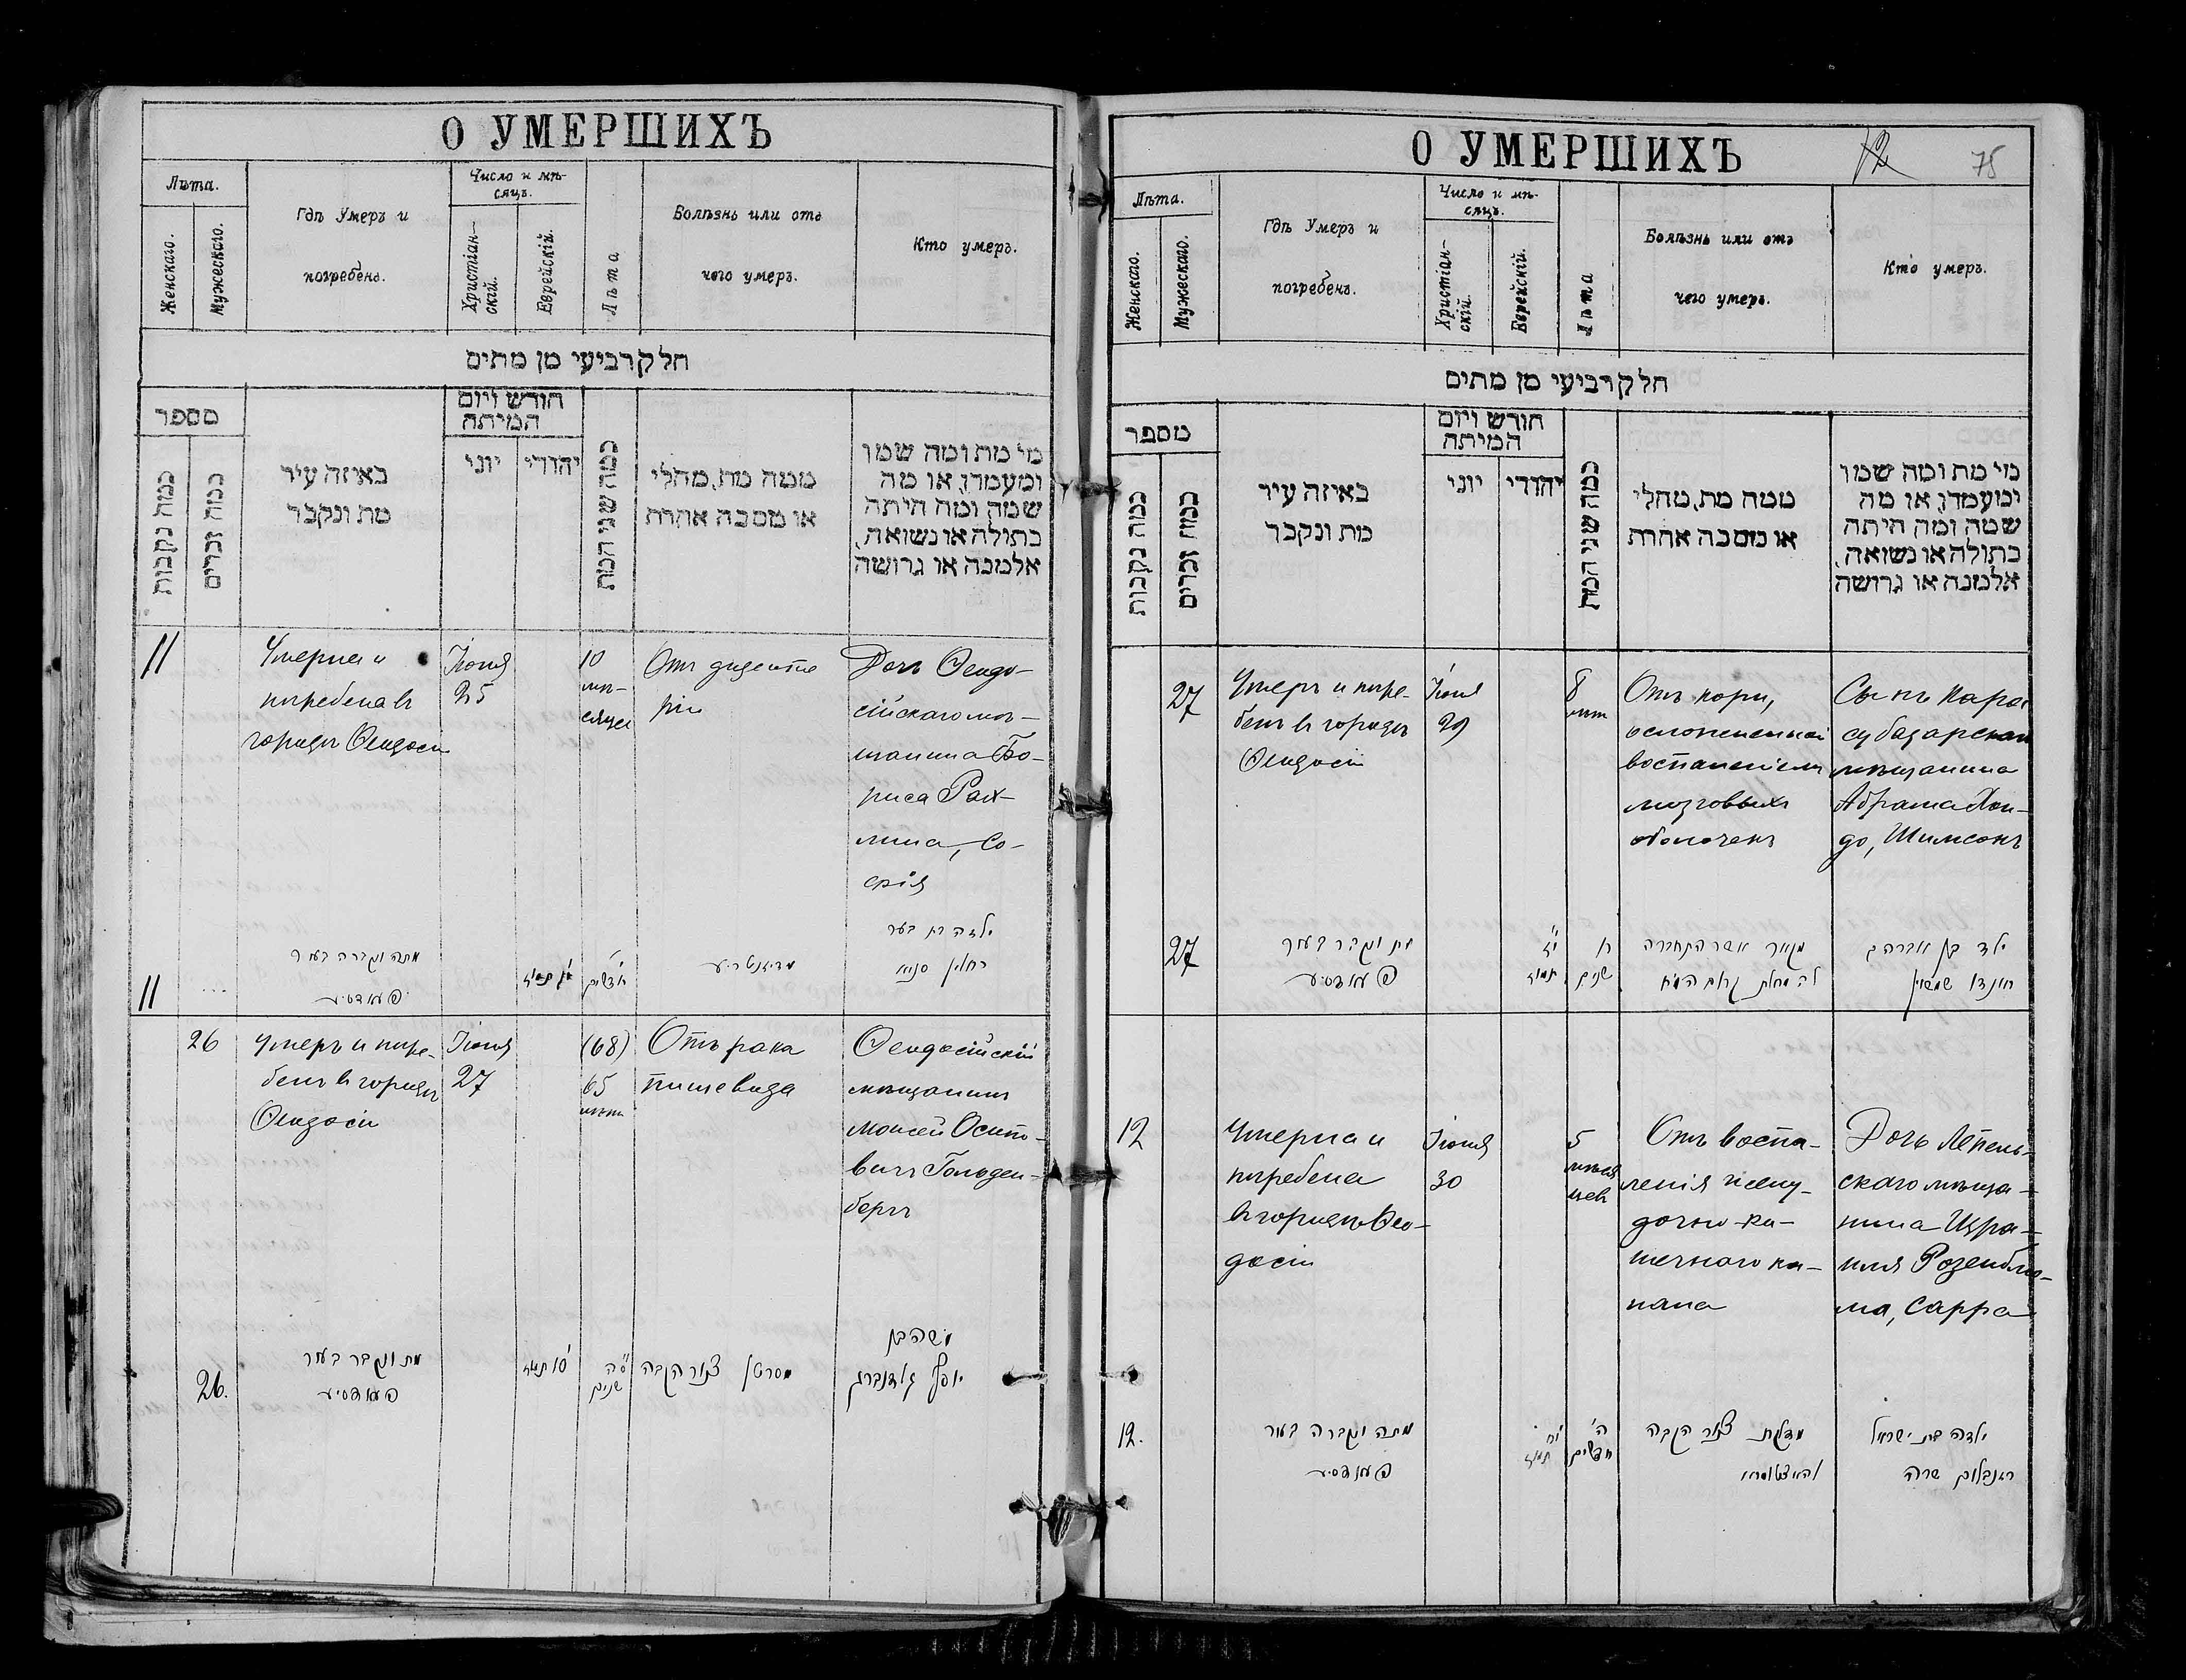 О УМЕРШИХЪ
Лѣта.
Женскаго.
Мужескаго.
Гдѣ Умеръ и
погребенъ.
Число и мѣ-
сяцъ.
Христіан-
скій.
Еврейскій.
Лѣта
Болѣзнь или отъ
чего умеръ.
Кто умеръ.
חלק רביעי מן מתים
מספר
כמה נקבות
כמה זכרים
באיזה עיר
מת ונקבר
חודש ויום
המיתה
יוני
יהודי
כמה שני המת
ממה מת, מחלי
או מסבה אחרת
מי מת ומה שמו
ומעמדו, או מה
שמה ומה היתה
בתולה או נשואה,
אלמנה או גרושה
11
Умерла и
погребена въ
городѣ Ѳеодосіи
Іюня
25
10
мѣ-
сяцев
Отъ дизенте
ріи
Дочь Ѳеодо-
сійскаго мѣ-
щанина Бо-
риса Рах-
лина, Со-
фія
11
מתה ונקברה בעיר
פעאדסיע
תמוז
חדשים
מדיזנטריע
ילדה בת בער
רחלין סניא
26
Умеръ и погре-
бенъ въ городѣ
Ѳеодосіи
Іюня
27
(68)
65
лѣтъ
Отъ рака
пищевода
Ѳеодосійскій
мѣщанинъ
Моисей Осипо-
вичъ Гольден-
бергъ
26.
מת ונקבר בעיר
פעאדסיע
טו תמוז
סה
שנים
מסרטן צנור הקבה
משה בן
יוסף גאלדנברג
О УМЕРШИХЪ
12
75
Лѣта.
Женскаго.
Мужескаго.
Гдѣ Умеръ и
погребенъ.
Число и мѣ-
сяцъ.
Христіан-
скій.
Еврейскій.
Лѣта
Болѣзнь или отъ
чего умеръ.
Кто умеръ.
חלק רביעי מן מתים
מספר
כמה נקבות
כמה זכרים
באיזה עיר
מת ונקבר
חודש ויום
המיתה
יוני
יהודי
כמה שני המת
ממה מת, מחלי
או מסבה אחרת
מי מת ומה שמו
ומעמדו, או מה
שמה ומה היתה
בתולה או נשואה,
אלמנה או גרושה
27
Умеръ и погре-
бенъ въ городѣ
Ѳеодосіи
Іюня
29
8
лѣтъ
Отъ кори,
осложненной
воспаленіемъ
мозговыхъ
оболочекъ
Сынъ Кара
субазарскаго
мѣщанина
Абрама Хон-
до, Шимсонъ
27
מת ונקבר בעיר
פעאדסיע
יז
תמוז
ח
שנים
אשר התחברה
לה מחלת קרום המוח
ילד בן אברהם
חונדו שמשון
12
Умерла и
погребена
въ городѣ Ѳео-
досіи
Іюня
30
5
мѣся
цевъ
Отъ воспа-
ленія желу-
дочно-ки-
шечнаго ка-
нала
Дочь Лепель-
скаго мѣща-
нина Изра-
иля Розенблю-
ма, Сарра
12.
מתה ונקברה בעיר
פעאדסיע
יח
תמוז
ה
חדשים
מדלקת צנור הקבה
ילדה בת ישראל
ראזנבלום שרה